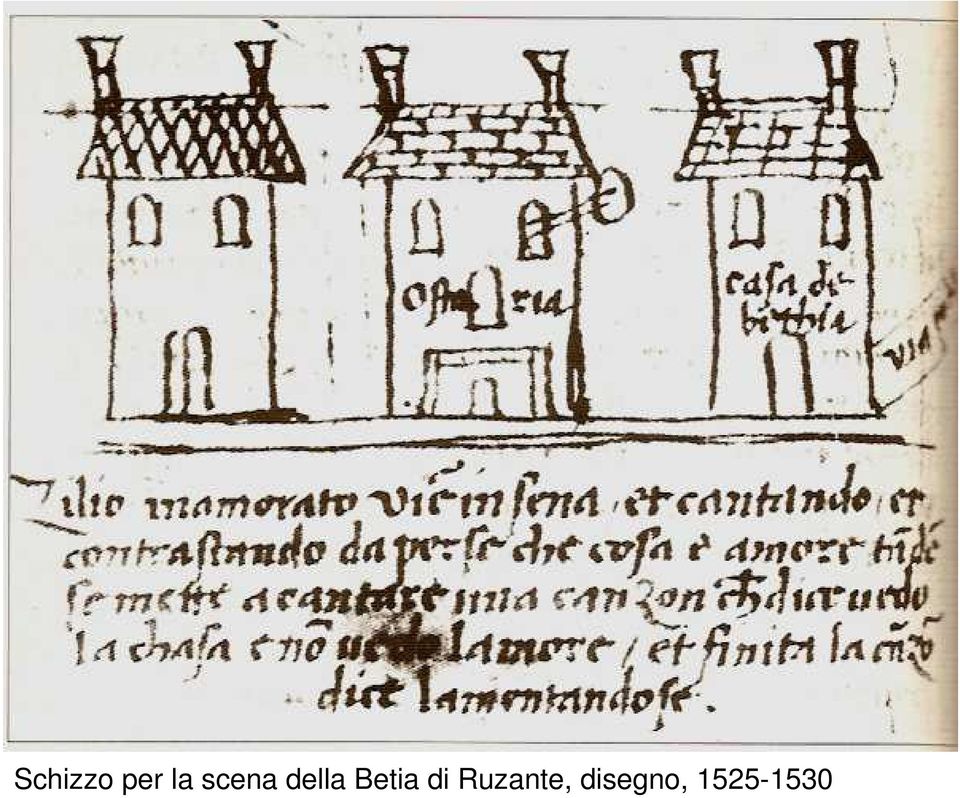 Osta ria
casa de
bethia
via
Zilio inamorato viē in sena / et cantando / et
contrastando da per se che cosa è amore tādē
se mette a cantare una canzon ch̄ dice uedo
la chasa e nō uedo lamore / et finita la cāzō
dice lamentandose .
Schizzo per la scena della Betia di Ruzante, disegno, 1525-1530